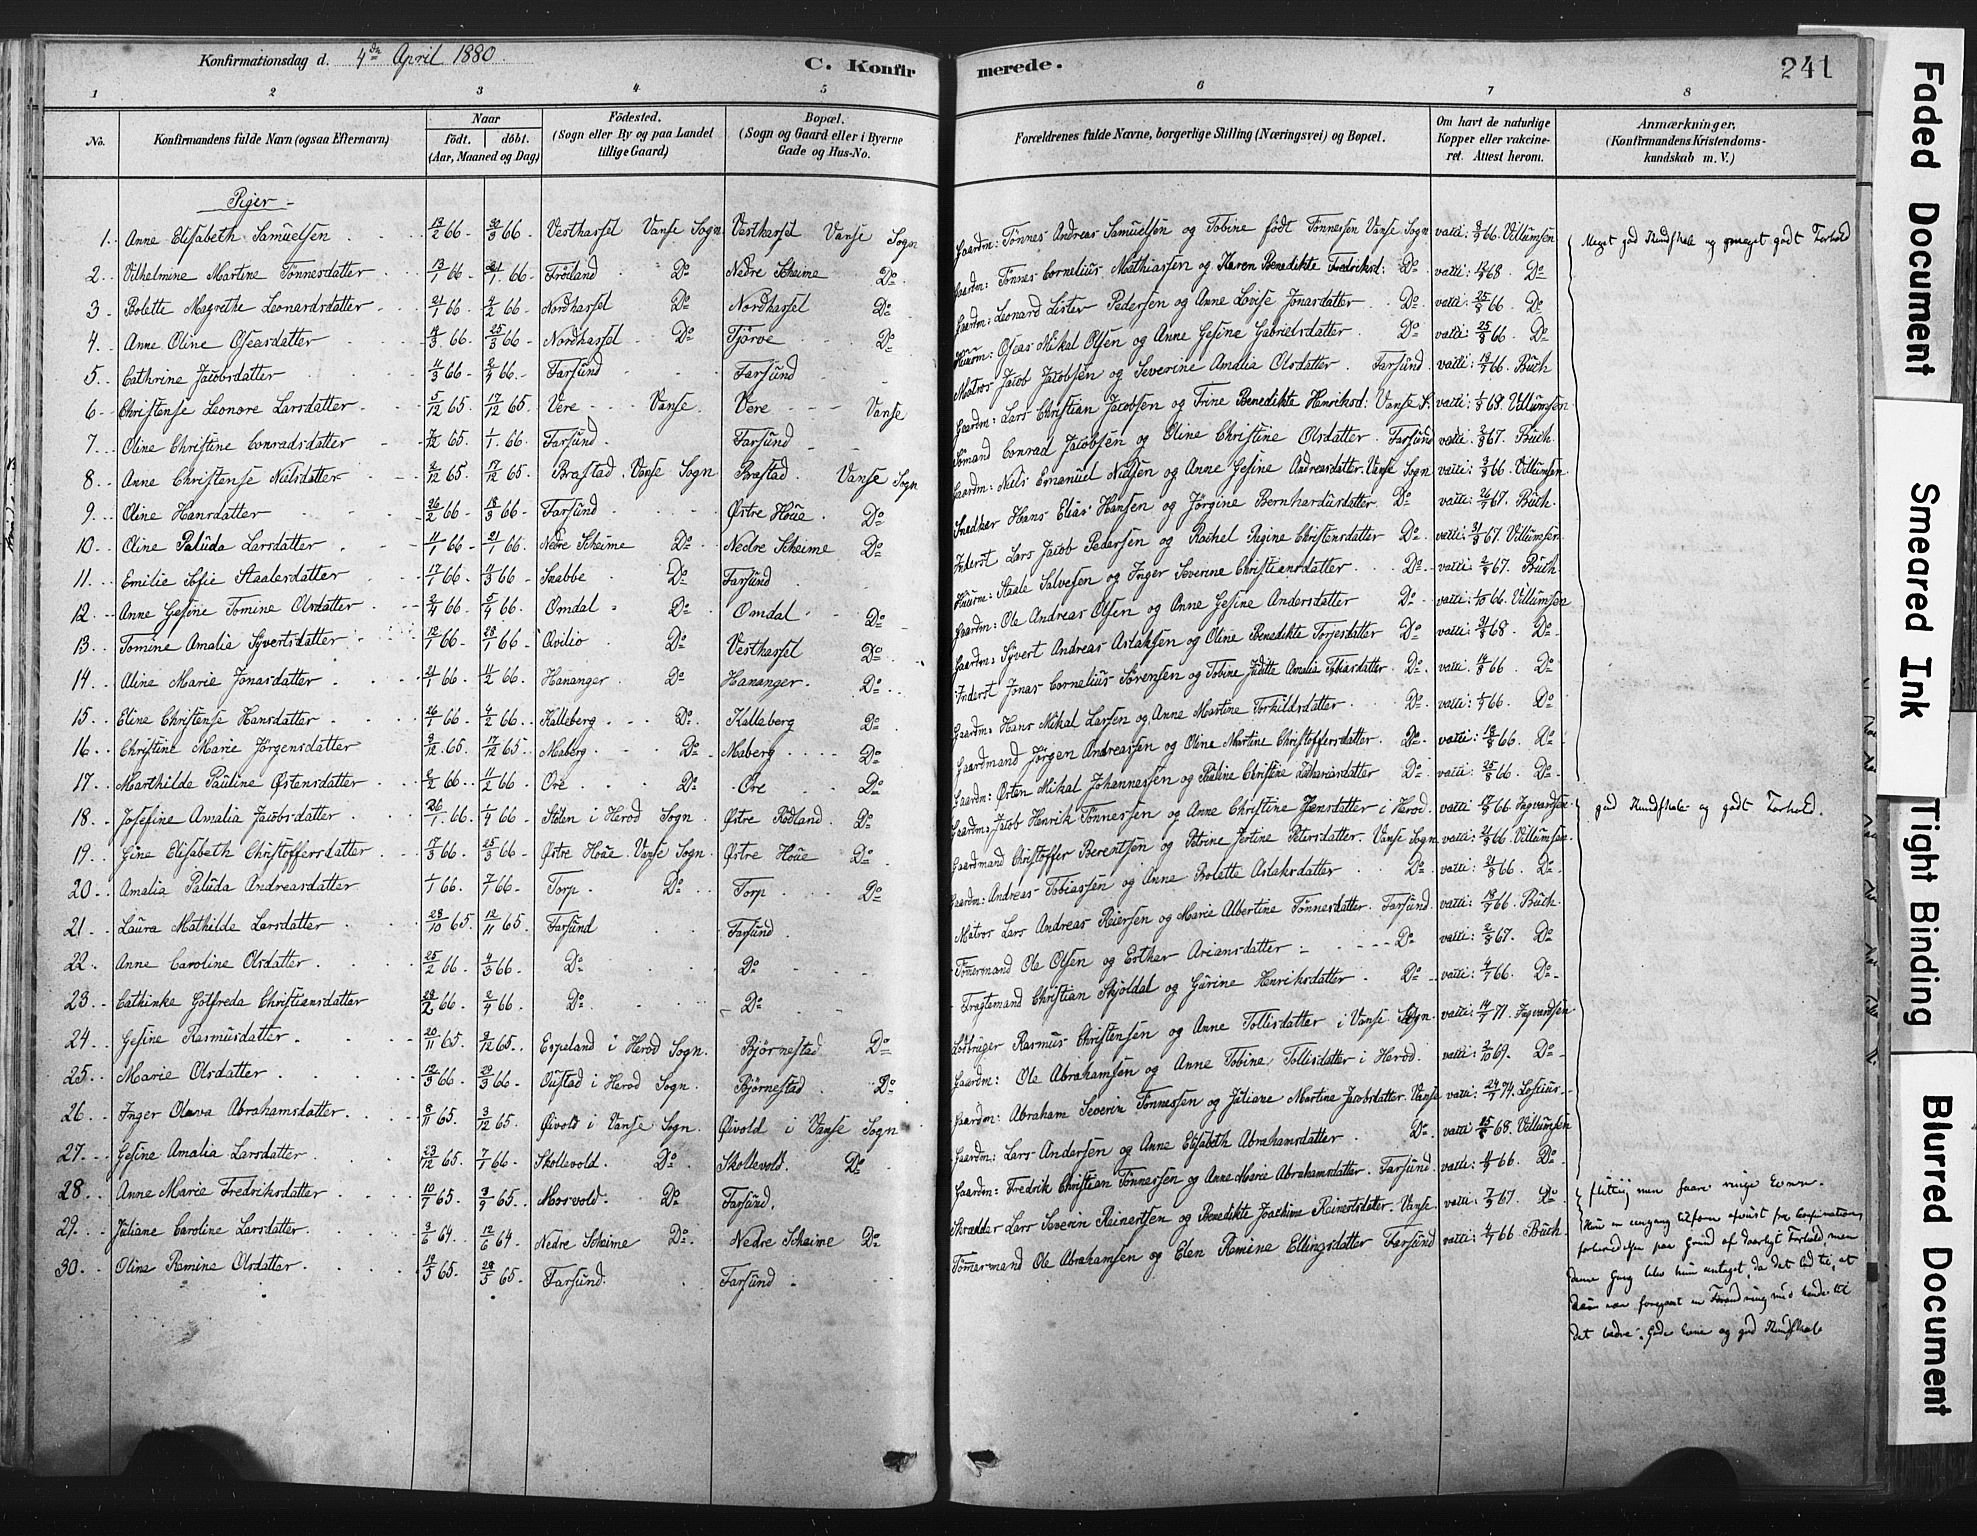 Konfirmationsdag d. 4de April 1880. C. Konfirmerede. 241
1 2 3 4 5 6 7 8
No. Konfirmandens fulde Navn (ogsaa Efternavn) Naar født. døbt. (Aar, Maaned og Dag) Fødested. (Sogn eller By og paa Landet tillige Gaard) Bopæl. (Sogn og Gaard eller i Byerne Gade og Hus-No. Forældrenes fulde Navne, borgerlige Stilling (Næringsvei) og Bopæl. Om havt de naturlige Kopper eller vakcineret. Attest herom. Anmærkninger. (Konfirmandens Kristendomskundskab m. V.)
Piger-
1. Anne Elisabeth Samuelsen 13/2 66 30/3 66 Vesthassel Vanse Sogn Vesthassel Vanse Sogn Gaardm: Tønnes Andreas Samuelsen og Tobine født Tønnesen Vanse Sogn 66 Villumsen Meget god Kundskab og meget godt Forhold
2. Vilhelmine Martine Tønnesdatter 13/1 66 66 Frøiland Do Nedre Skeime Do Gaardm: Tønnes Cornelius Mathiassen og Karen Benedikte Fredriksd: Do 68. Do
3. Bolette Magrethe Leonardsdatter 21/1 66 4/2 66 Nordhassel Do Nordhassel Do Gaardm: Leonard Lister Pedersen og Anne Lovise Jonasdatter Do 66 Do
4. Anne Oline Oseasdatter 66 25/3 66 Nordhassel Do Tjørve Do Huusm: Oseas Mikal Olsen og Anne Gesine Gabrielsdatter Do 66. Do
5. Cathrine Jacobsdatter 11/3 66 2/4 66 Farsund Farsund Matros Jacob Jacobsen og Severine Amalia Olsdatter Farsund 66. Buch
6. Christense Leonore Larsdatter 5/12 65. 17/12 65. Vere Vanse Vere Vanse Gaardm: Lars Christian Jacobsen og Trine Benedikte Henriksd: Vanse S: 68. Villumsen
7. Oline Christine Conradsdatter 65. 1/1 66 Farsund Farsund Sømand Conrad Jacobsen og Oline Christine Olsdatter Farsund 67. Buch
8. Anne Christense Nielsdatter 2/12 65. 17/12 65. Brastad Vanse Sogn Brastad. Vanse Sogn Gaardm: Niels Emanuel Nielsen og Anne Gesine Andreasdatter Vanse Sogn 66. Villumsen
9. Oline Hansdatter 26/2 66 18/3 66 Farsund Østre Houe Do Snedker Hans Elias Hansen og Jørgine Bernhardusdatter Do 67. Buch
10. Oline Paluda Larsdatter 11/1 66 21/1 66 Nedre Skeime Do Nedre Skeime Do Inderst Lars Jacob Pedersen og Rachel Regine Christensdatter Do 67. Villumsen
11. Emilie Sofie Staalesdatter 17/1 66 11/3 66 Snabbe Do Farsund Huusm: Staale Salvesen og Inger Severine Christiansdatter Do 67. Buch
12. Anne Gesine Tomine Olsdatter 2/4 66 5/4 66. Omdal Do Omdal Do Gaardm: Ole Andreas Olsen og Anne Gesine Andersdatter Do 66. Villumsen
13. Tomine Amalia Syvertsdatter 12/1 66 28/1 66 Ovilio Do Vesthassel Do Gaardm: Syvert Andreas Aslaksen og Oline Benedikte Torjesdatter Do 68. Do
14. Aline Marie Jonasdatter 21/1 66 11/2 66 Hananger Do Hananger Do Inderst Jonas Cornelius Sørensen og Tobine Juditte Amalia Tobiasdatter Do 66 Do
15. Eline Christense Hansdatter 26/1 66 4/2 66 Kalleberg Do Kalleberg Do Gaardm: Hans Mikal Larsen og Anne Martine Torkildsdatter Do 66. Do
16. Christine Marie Jørgensdatter 9/12 65. 17/12 65 Maberg Do Maberg Do Gaardmand Jørgen Andreassen og Oline Martine Christoffersdatter Do 66. Do
17. Marthilde Pauline Østensdatter 2/2 66 11/2 66 Ore Do Ore Do Gaardm: Østen Mikal Johannessen og Pauline Christine Zakariasdatter Do 66 Do
18. Josefine Amalia Jacobsdatter 26/1 66. 1/4 66 Stølen i Herod Sogn Østre Rødland Do Gaardm: Jacob Henrik Tønnessen og Anne Christine Hansdatter i Herod. 66 god Kundskab og godt Forhold.
19. Gine Elisabeth Christoffersdatter 7/3 66 25/3 66 Østre Houe Vanse Sogn Østre Houe Do Gaardmand Christoffer Berentsen og Petrine Jertine Petersdatter. Vanse Sogn 66 Villumsen
20. Amalia Paluda Andreasdatter 1/1 66. 7/1 66 Torp Do Torp Do Gaardm: Andreas Tobiassen og Anne Bolette Aslaksdatter Do 66. Do
21. Laura Mathilde Larsdatter 28/10 65. 12/11 65. Farsund Farsund Matros Lars Andreas Reiersen og Marie Albertine Tønnesdatter Farsund 66. Buch
22. Anne Caroline Olsdatter 25/2 66 4/3 66. Do Do Tømermand Ole Olsen og Esther Ariansdatter Do 67. Do
23. Cathinke Gotfreda Christiansdatter 23/2 66 2/4 66 Do Do Fragtemand Christian Skjoldal og Gurine Henriksdatter Do 66. Do
24. Gesine Rasmusdatter 20/11 65. 65. Espeland i Herod Sogn. Bjørnestad Do Rasmus Christensen og Anne Tollisdatter i Vanse Sogn 71.
25. Marie Olsdatter 12/3 66 66 i Herod Sogn. Bjørnestad Do Gaardm: Ole Abrahamsen og Anne Tobine Tollisdatter i Herod. 69. Do
26. Inger Olava Abrahamsdatter 8/11 65. 3/12 65. Øivold i Vanse Sogn. Øivold i Vanse Sogn Gaardm: Abraham Severin Tønnessen og Juliane Martine Jacobsdatter Vanse 74.
27. Gesine Amalia Larsdatter 23/12 65. 7/1 66 Skollevold. Do Skollevold. Do Gaardm: Lars Andersen og Anne Elisabeth Abrahamsdatter Do 68. Villumsen
28. Anne Marie Fredriksdatter 10/7 65. 65. Mosvold. Do Farsund. Gaardm: Fredrik Christian Tønnessen og Anne Marie Abrahamsdatter Farsund 66. Do
29. Juliane Caroline Larsdatter. 3/6 64. 12/6 64. Nedre Skeime Do Nedre Skeime Do Skrædder Lars Severin Reinertsen og Benedikte Joachine Reinertsdatter. Vanse 67. Do
30. Oline Remine Olsdatter 12/5 65. 28/5 65. Farsund. Farsund Tømermand Ole Abrahamsen og Elen Remine Ellingsdatter Farsund 66 Buch
flittig men evne.
Hun en gang tilforn afvist fra Confirmations
forberedelsen paa Grund af daarligt Forhold men
denne Gang blev hun antaget, da det lod til, at
der var foregaaet en Forandring med hende til
det bedre. Gode Evne og god Kundskab
Faded Document
Smeared Ink
Tight Binding
Blurred Document